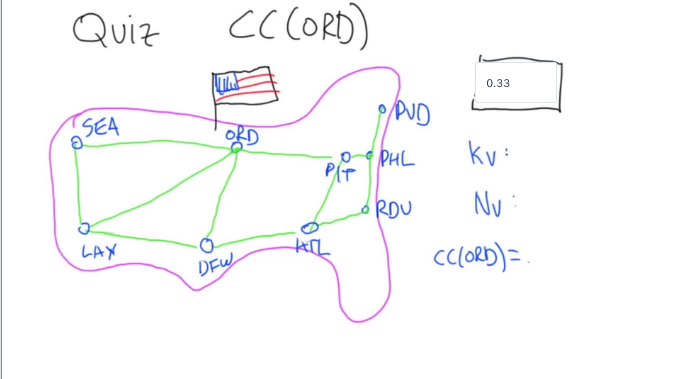 Quiz CC(ORD)
0.33
SEA
ORD
PVD
PIT
PHL
Kv:
RDU
Nv:
LAX
DFW
ATL
CC(ORD)=